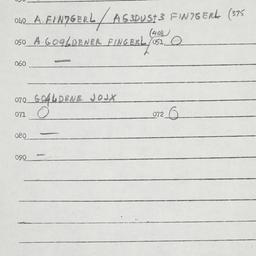 040 A FIN7GERL / AG3DUST3 FIN7GERL (375
050 A GO9LDENER FINGERL / (408) 051 O
060 —
070 GO4LDENE JOJX
071 O 072 O
080 —
090 —